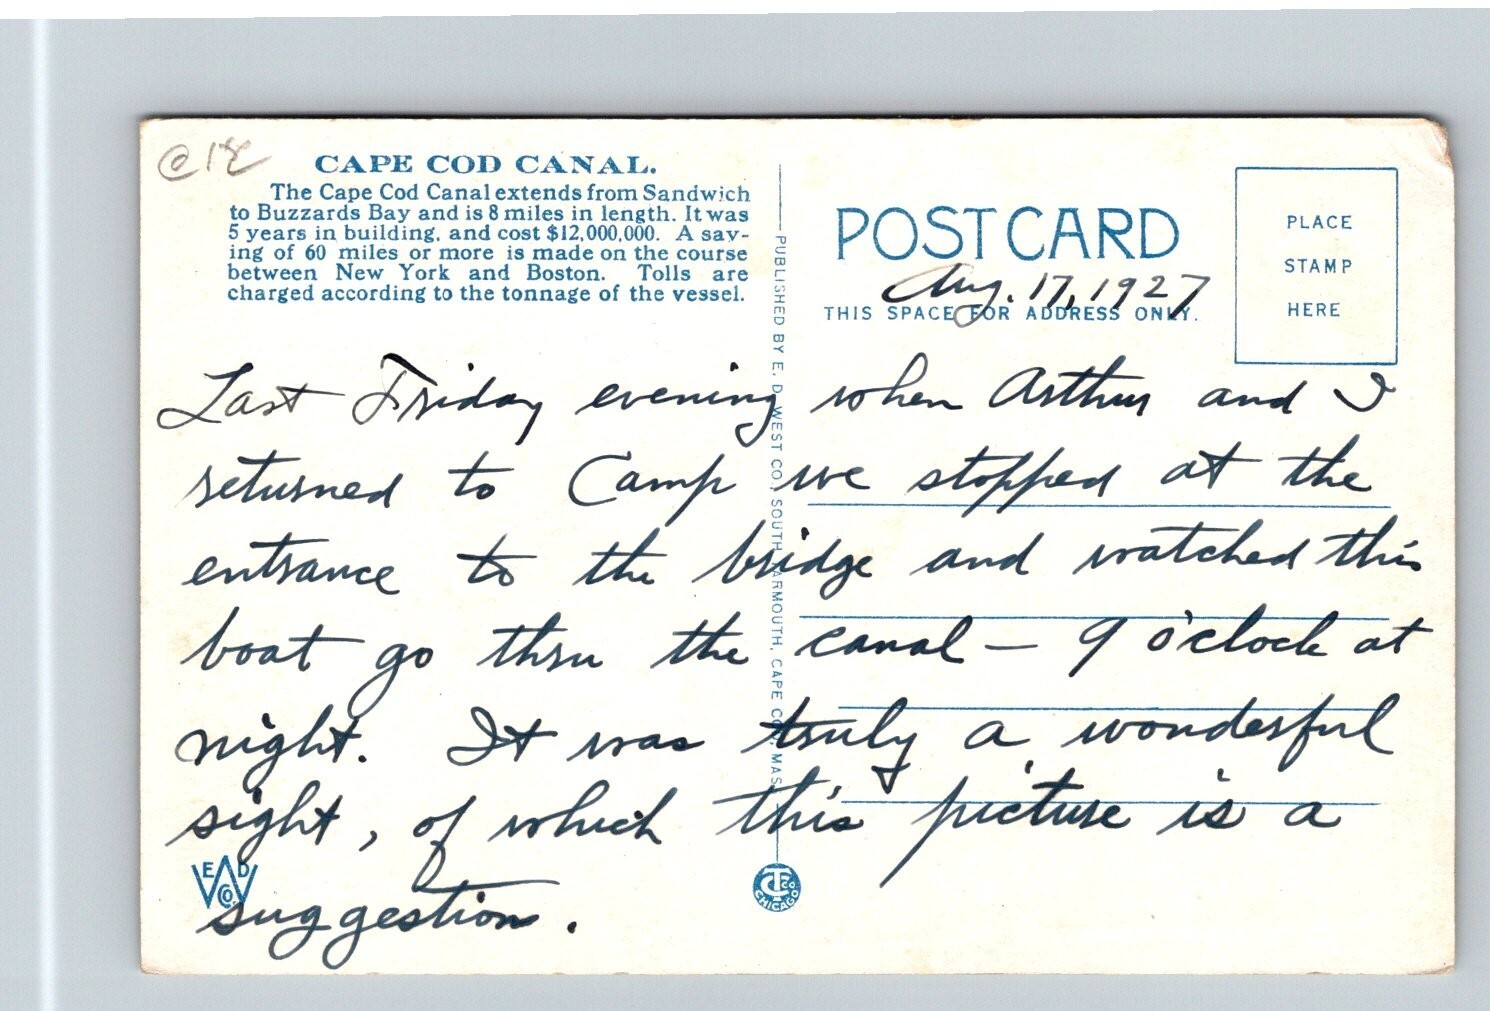 CAPE COD CANAL.
The Cape Cod Canal extends from Sandwich
to Buzzards Bay and is 8 miles in length. It was
5 years in building, and cost $12,000,000. A sav-
ing of 60 miles or more is made on the course
between New York and Boston. Tolls are
charged according to the tonnage of the vessel.
POST CARD
Aug. 17, 1927
THIS SPACE FOR ADDRESS ONLY.
PLACE
STAMP
HERE
PUBLISHED BY E. D. WEST CO., SOUTH YARMOUTH, CAPE COD, MASS.
Last Friday evening when Arthur and I
returned to Camp we stopped at the
entrance to the bridge and watched this
boat go thru the canal — 9 o'clock at
night. It was truly a wonderful
sight, of which this picture is a
suggestion.
E D W CO.
C T CO. CHICAGO